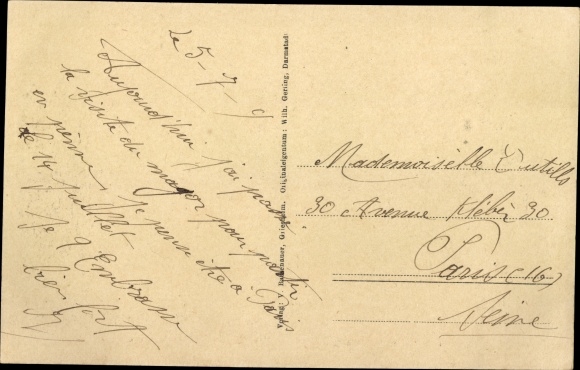 Le 5-7-
Aujourd'hui j'ai passé
la visite du major pour partir
en perme. Je pense être à Paris
le 14 Juillet
Je t'Embrasse
bien fort
Verlag: J. Gernsheim, Originaleigentum: Wilh. Gerling, Darmstadt
Mademoiselle
30 Avenue Kléber 30
Paris (16)
Seine